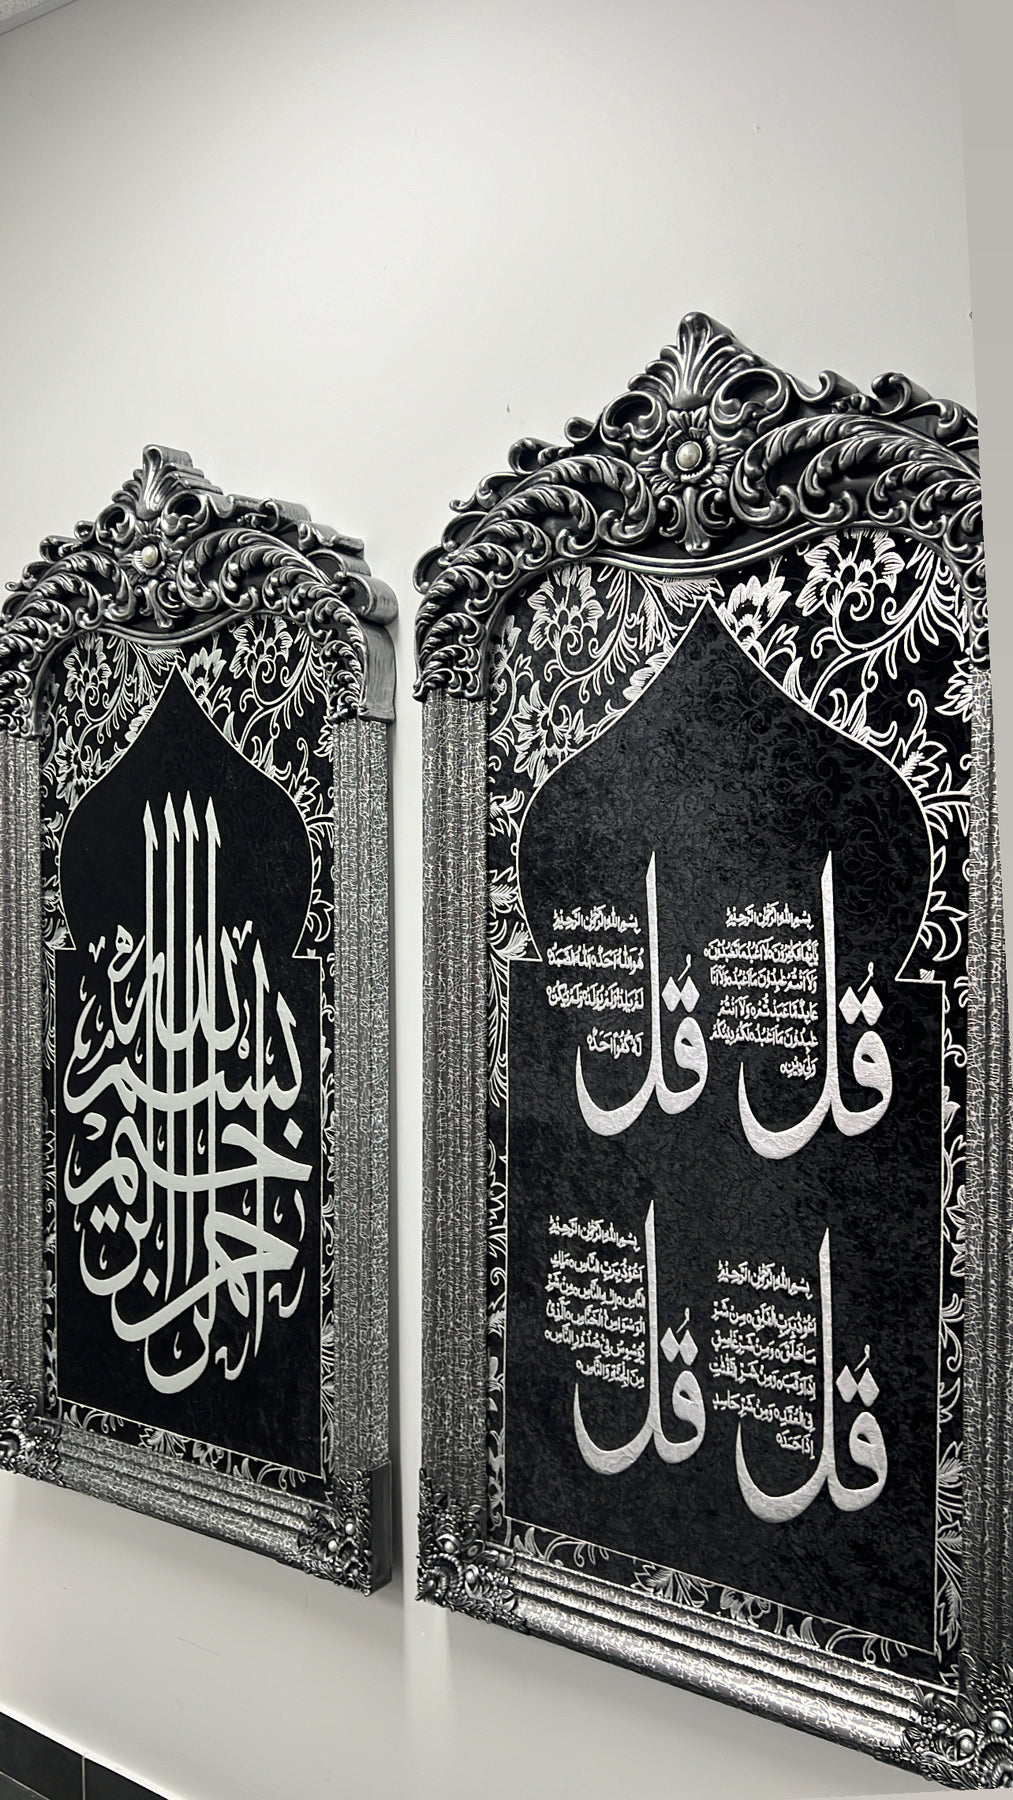 بسم الله الرحمن الرحيم
قُل
بِسْمِ اللهِ الرَّحْمٰنِ الرَّحِيْمِ
يٰٓاَيُّهَا الْكٰفِرُوْنَ لَا اَعْبُدُ مَا تَعْبُدُوْنَ
وَلَا اَنْتُمْ عٰبِدُوْنَ مَا اَعْبُدُ وَلَا اَنَا
عَابِدٌ مَّا عَبَدْتُّمْ وَلَا اَنْتُمْ
عٰبِدُوْنَ مَا اَعْبُدُ لَكُمْ دِيْنُكُمْ
وَلِيَ دِيْنِ
قُل
بِسْمِ اللهِ الرَّحْمٰنِ الرَّحِيْمِ
هُوَ اللهُ اَحَدٌ اللهُ الصَّمَدُ
لَمْ يَلِدْ وَلَمْ يُوْلَدْ وَلَمْ يَكُنْ
لَهٗ كُفُوًا اَحَدٌ
قُل
بِسْمِ اللهِ الرَّحْمٰنِ الرَّحِيْمِ
اَعُوْذُ بِرَبِّ الْفَلَقِ مِنْ شَرِّ
مَا خَلَقَ وَمِنْ شَرِّ غَاسِقٍ
اِذَا وَقَبَ وَمِنْ شَرِّ النَّفّٰثٰتِ
فِي الْعُقَدِ وَمِنْ شَرِّ حَاسِدٍ
اِذَا حَسَدَ
قُل
بِسْمِ اللهِ الرَّحْمٰنِ الرَّحِيْمِ
اَعُوْذُ بِرَبِّ النَّاسِ مَلِكِ
النَّاسِ اِلٰهِ النَّاسِ مِنْ شَرِّ
الْوَسْوَاسِ الْخَنَّاسِ الَّذِيْ
يُوَسْوِسُ فِيْ صُدُوْرِ النَّاسِ
مِنَ الْجِنَّةِ وَالنَّاسِ